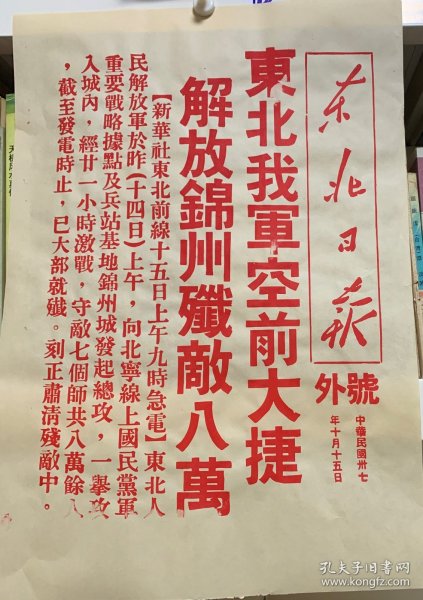 东北日报
號外
中華民國卅七
年十月十五日
東北我軍空前大捷
解放錦州殲敵八萬
【新華社東北前線十五日上午九時急電】東北人
民解放軍於昨(十四日)上午,向北寧線上國民黨軍
重要戰略據點及兵站基地錦州城發起總攻,一擧攻
入城內,經廿一小時激戰,守敵七個師共八萬餘人
,截至發電時止,已大部就殲。刻正肅清殘敵中。
孔夫子旧书网
www.kongfz.com